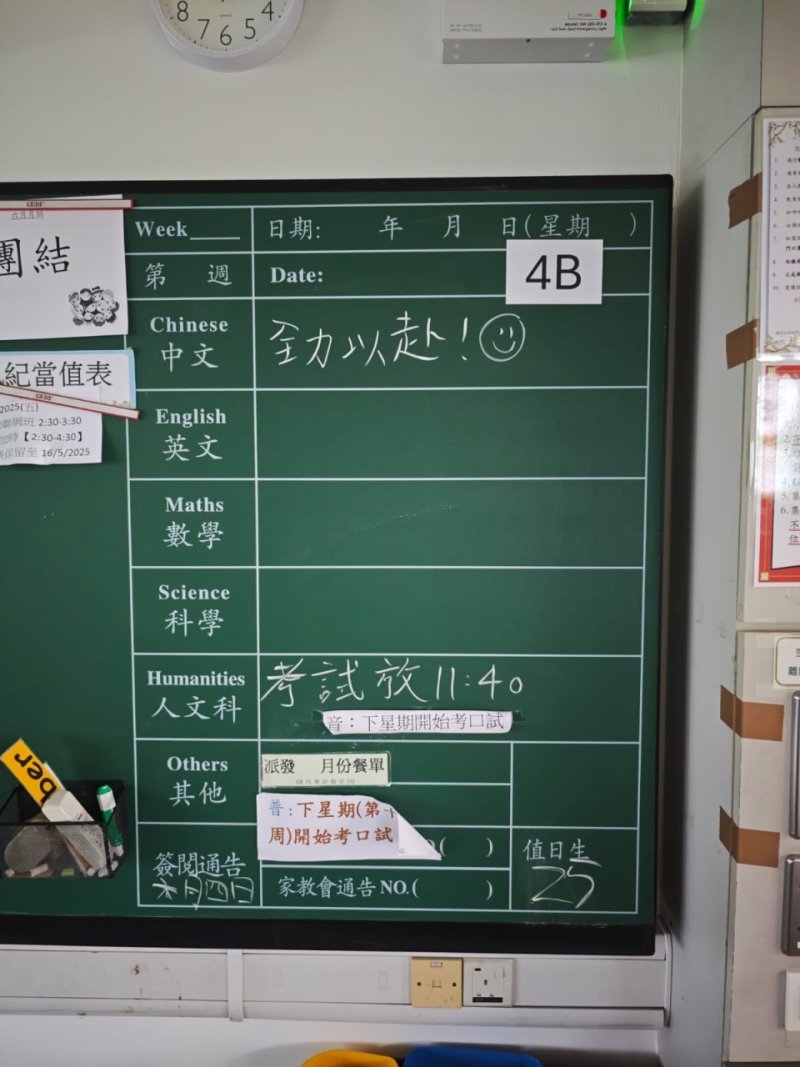 8 7 6 5 4
團結
紀當值表
2025(五)
班 2:30-3:30
時【2:30-4:30】
保留至 16/5/2025
Week
日期: 年 月 日(星期 )
第 週
Date:
4B
Chinese
中文
全力以赴!
English
英文
Maths
數學
Science
科學
Humanities
人文科
考試放11:40
音:下星期開始考口試
Others
其他
派發 月份餐單
普:下星期(第十
周)開始考口試
( )
簽閱通告
六月四日
家教會通告NO.( )
值日生
25
ber